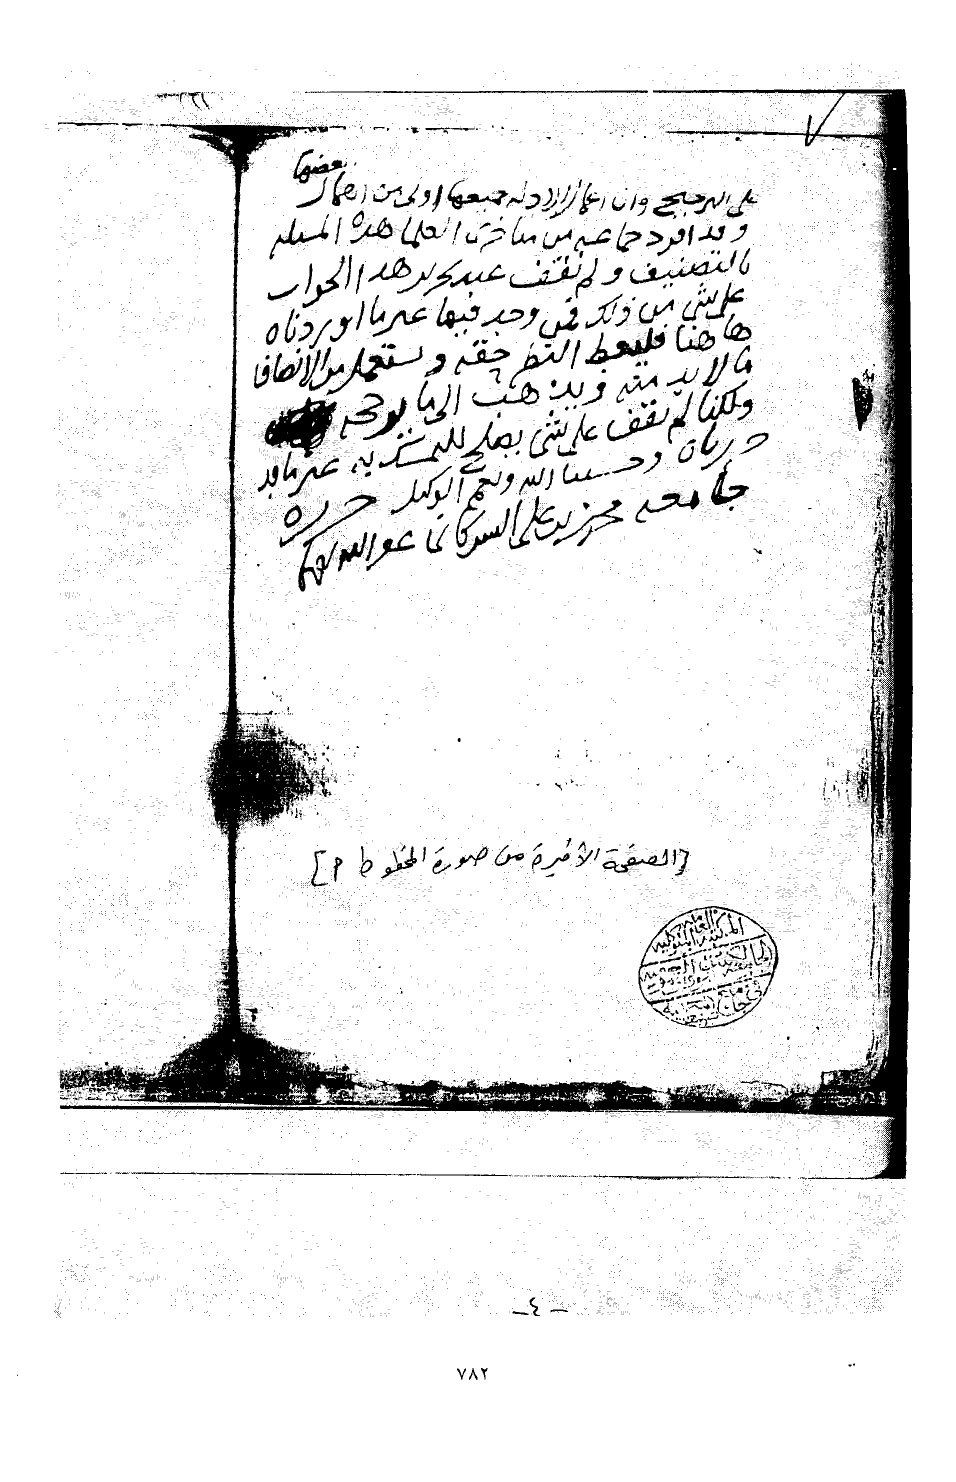 بعضها
على الترجيح وان اعمال الادله جميعها اولى من اهمال
وقد افرد جماعه من متاخرى العلما هذه المسله
بالتصنيف ولم نقف عند تحرير هذا الجواب
على شى من ذلك فمن وجد فيها غير ما اوردناه
هاهنا فليعط النظر حقه ويستعمل من الانصاف
ما لا بد منه ويذهب الى ما يرجحه
ولكنا لم نقف على شى يصلح للتمسك به غير ما قد
حررناه وحسبنا الله ونعم الوكيل حرره
جامعه محمد بن على الشوكانى غفر الله لهما
[الصفحة الأخيرة من صورة المخطوط م]
المكتبة المتوكلية
الجامعة لكتب
ـ ٤ ـ
٧٨٢